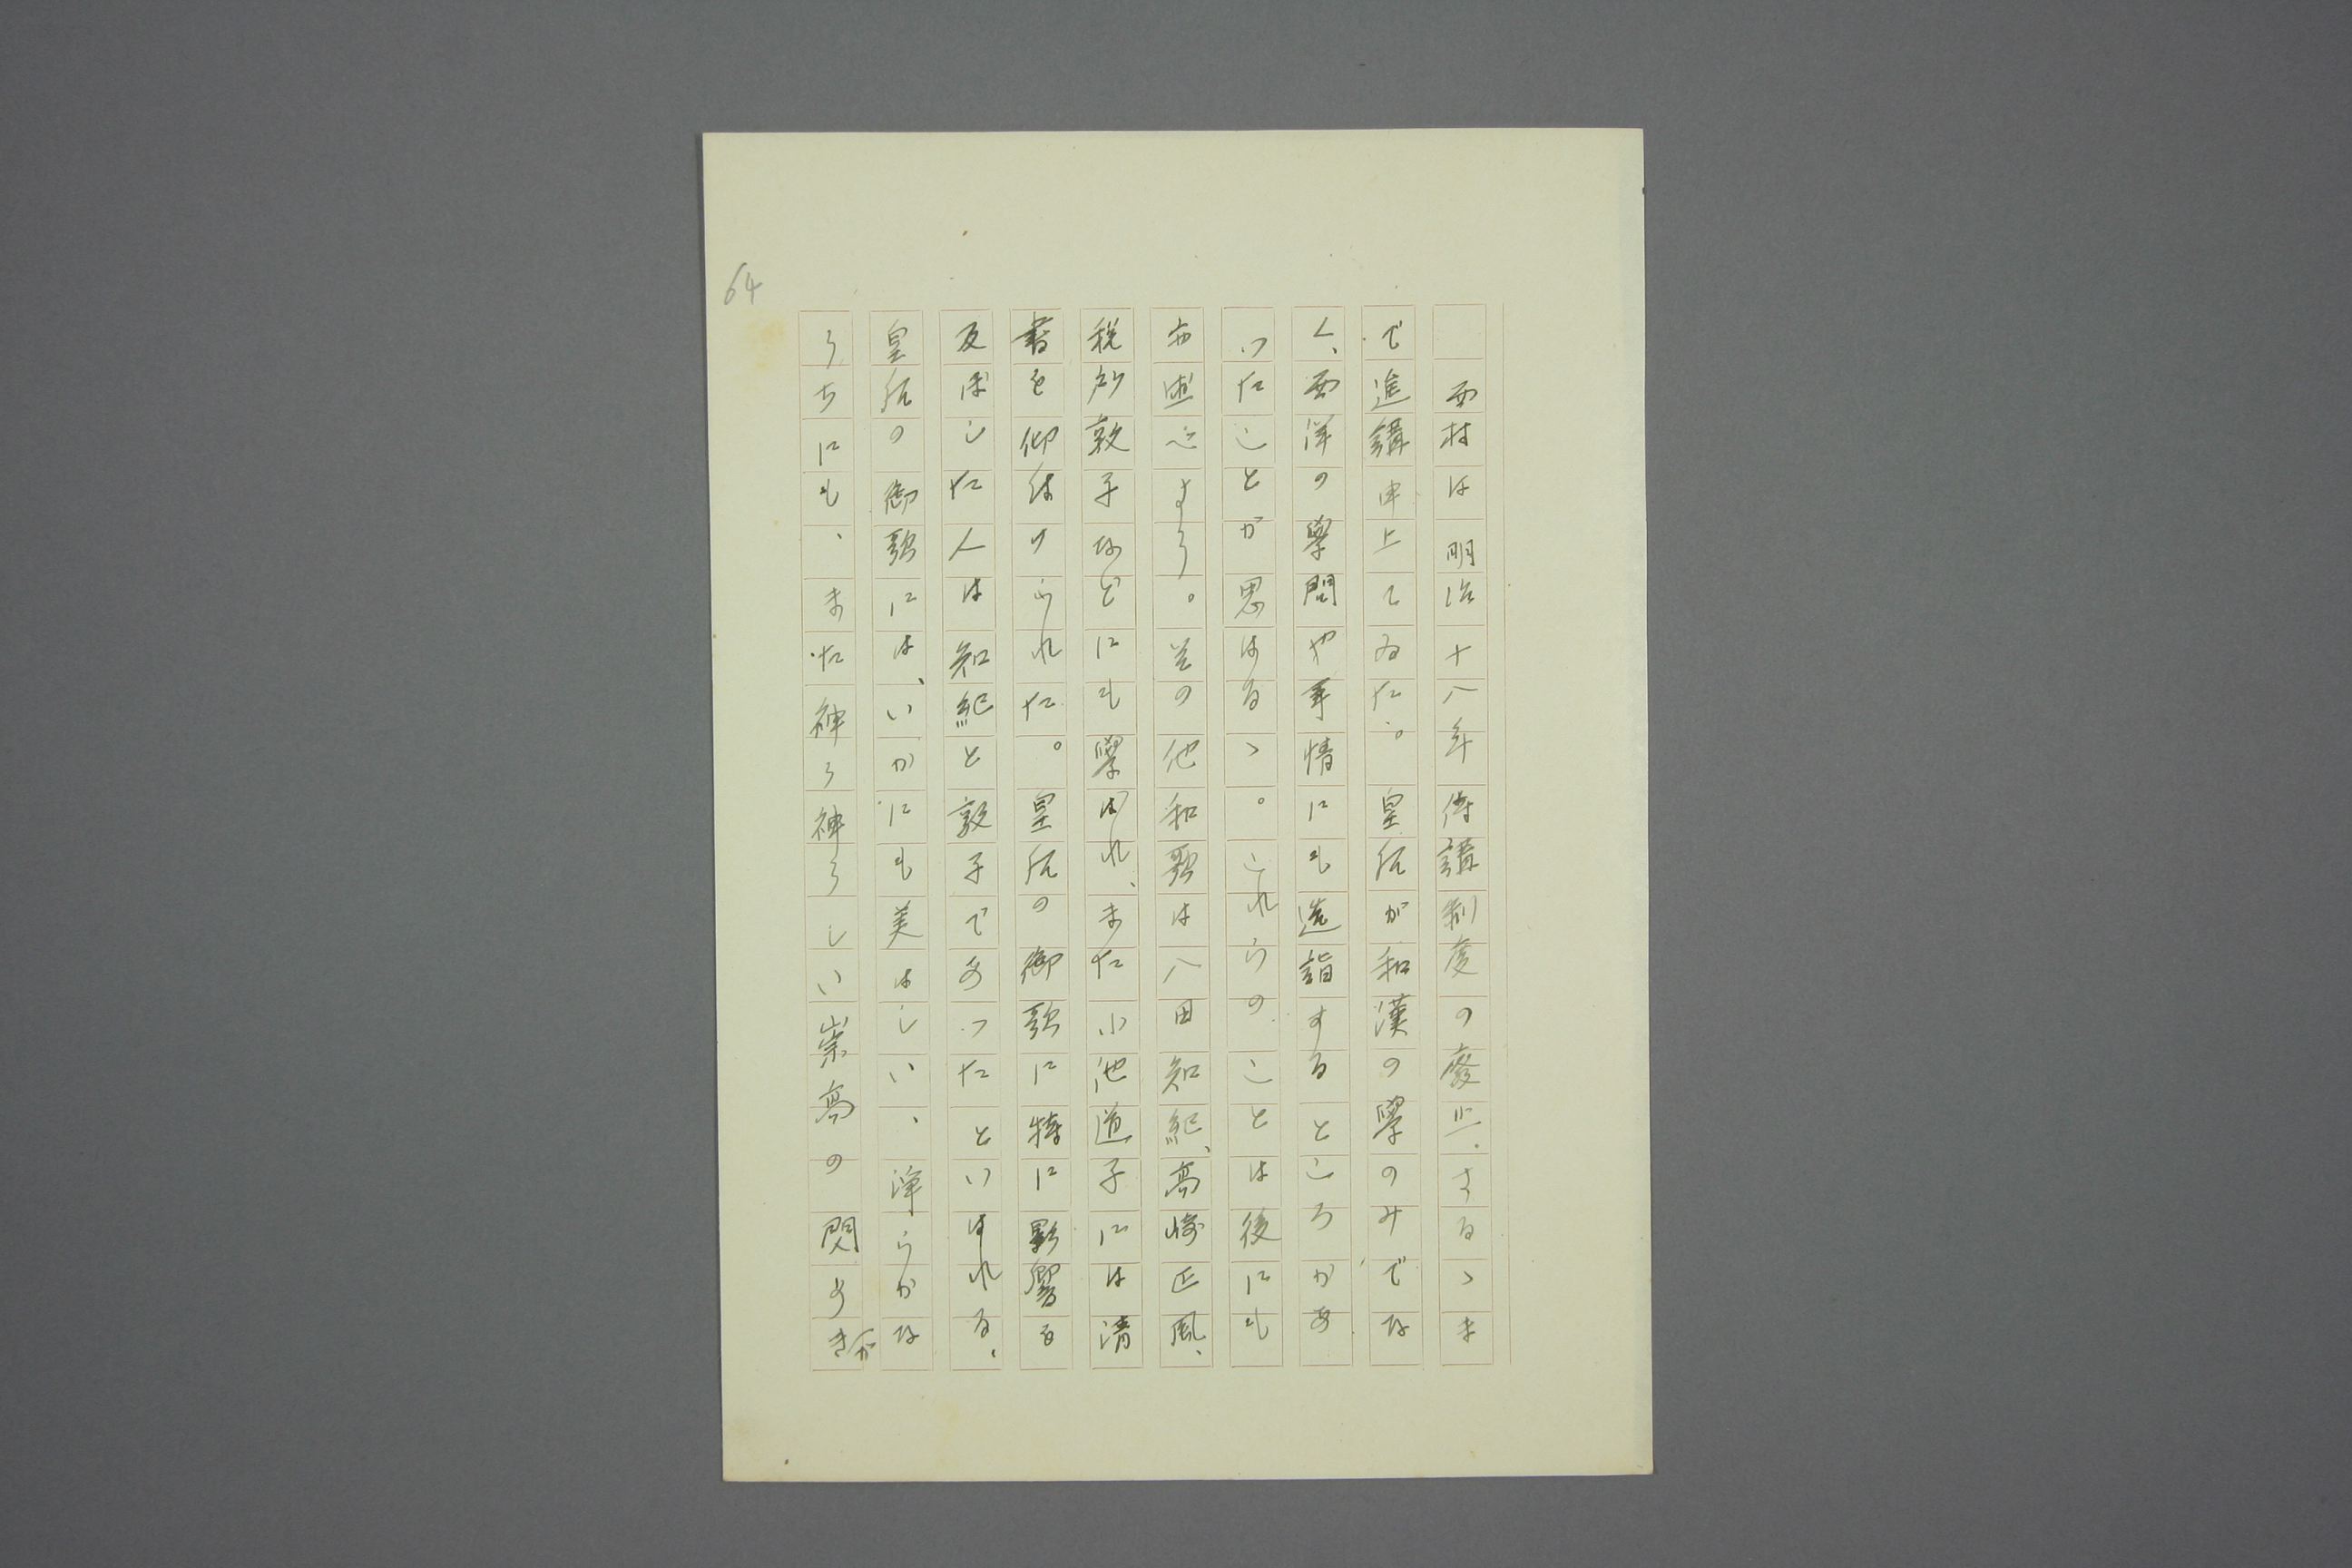 64
西村は明治十八年侍講制度の廢止さるゝま
で進講申上てゐた。皇后が和漢の學のみでな
く、西洋の學問や事情にも造詣するところがあ
つたことが思はるゝ。これらのことは後にも
尚述べよう。その他和歌は八田知紀、高崎正風、
税所敦子などにも學ばれ、また小池道子には清
書を仰付けられた。皇后の御歌に特に影響を
及ぼした人は知紀と敦子であつたといはれる、
皇后の御歌には、いかにも美はしい、淨らかな
うちにも、また神々神々しい崇高の閃めきが